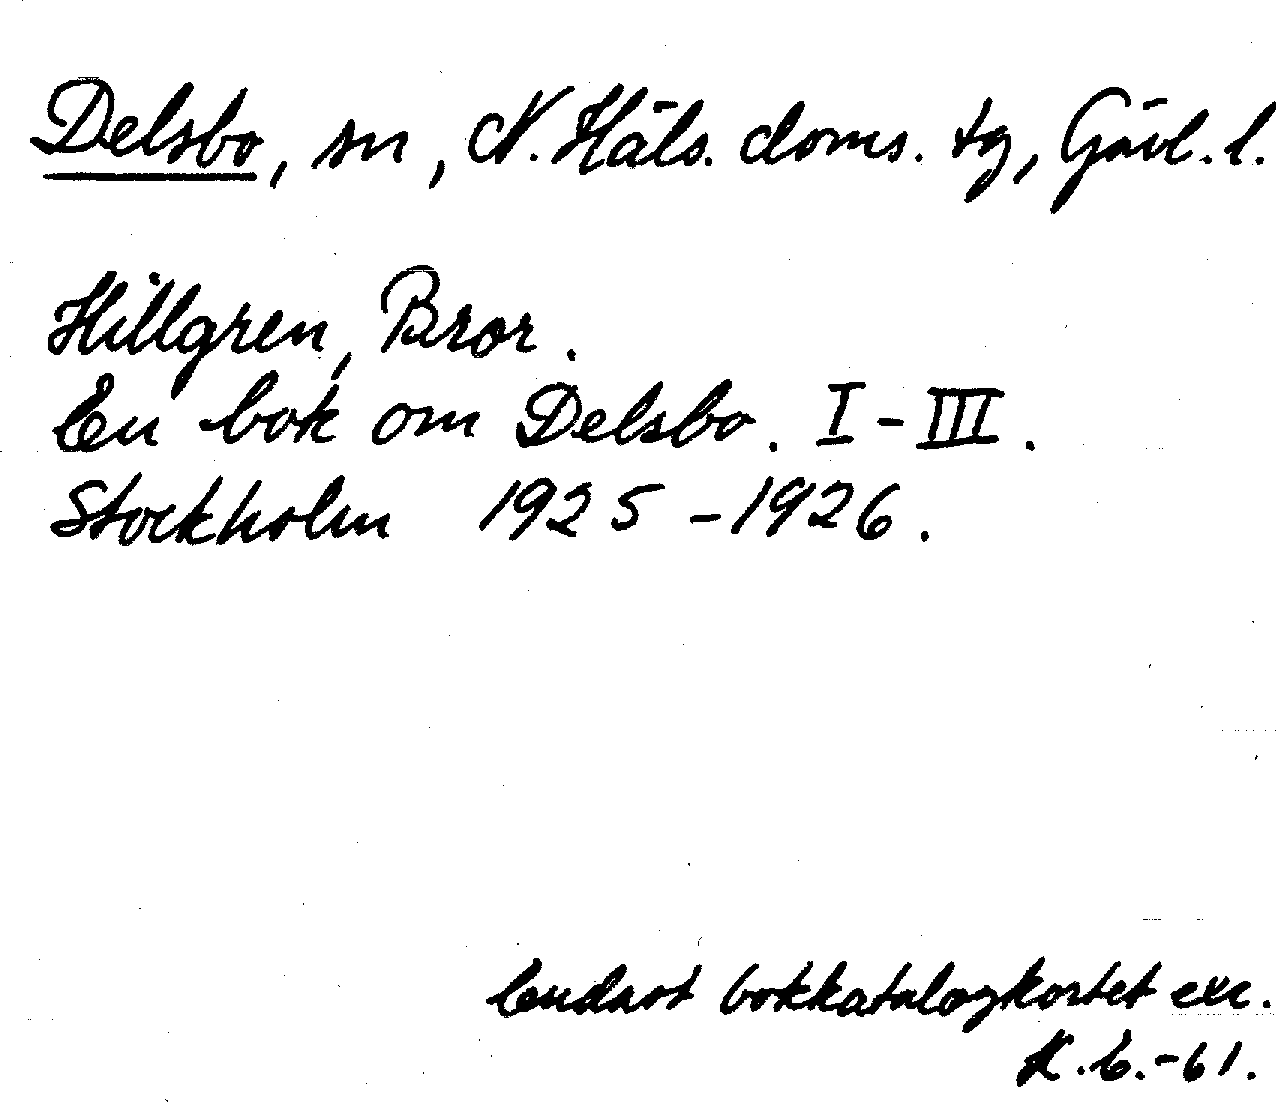 Delsbo, sn, N. Häls. doms. tg, Gävl. l.
Hillgren, Bror.
En bok om Delsbo. I-III.
Stockholm 1925-1926.
Endast bokkatalogkortet exc.
K.E.-61.